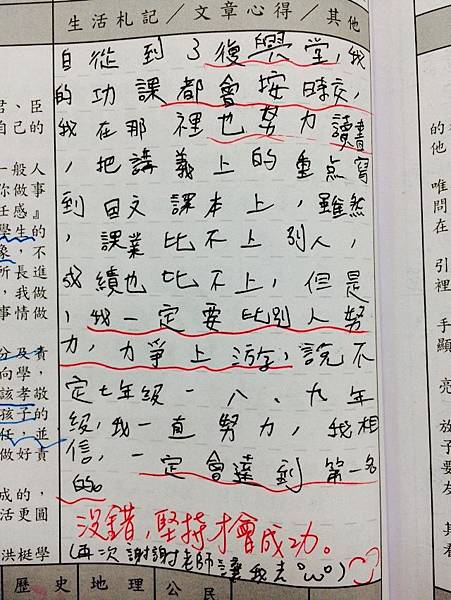 生活札記／文章心得／其他
自從到了復興堂,我
的功課都會按時交,
我在那裡也努力讀書
,把講義上的重點寫
到国文課本上,雖然
,課業比不上別人,
成績也比不上,但是
,我一定要比別人努
力,力爭上游,說不
定七年級、八、九年
級,我一直努力,我相
信,一定會達到第一名
的。
沒錯,堅持才會成功。
(再次謝謝老師讓我去°ω°)
歷史地理公民
君、臣
自己的
一般人
你做事
任感』
學生的
象,不
所長進
,我做
事情做
分及責
向學,
該孝敬
孩子的
任,並
做好責
成的,
活更圓
洪梃學
的
他
唯
問
在
引
裡
手
顯
亮
放
子
要
友
其